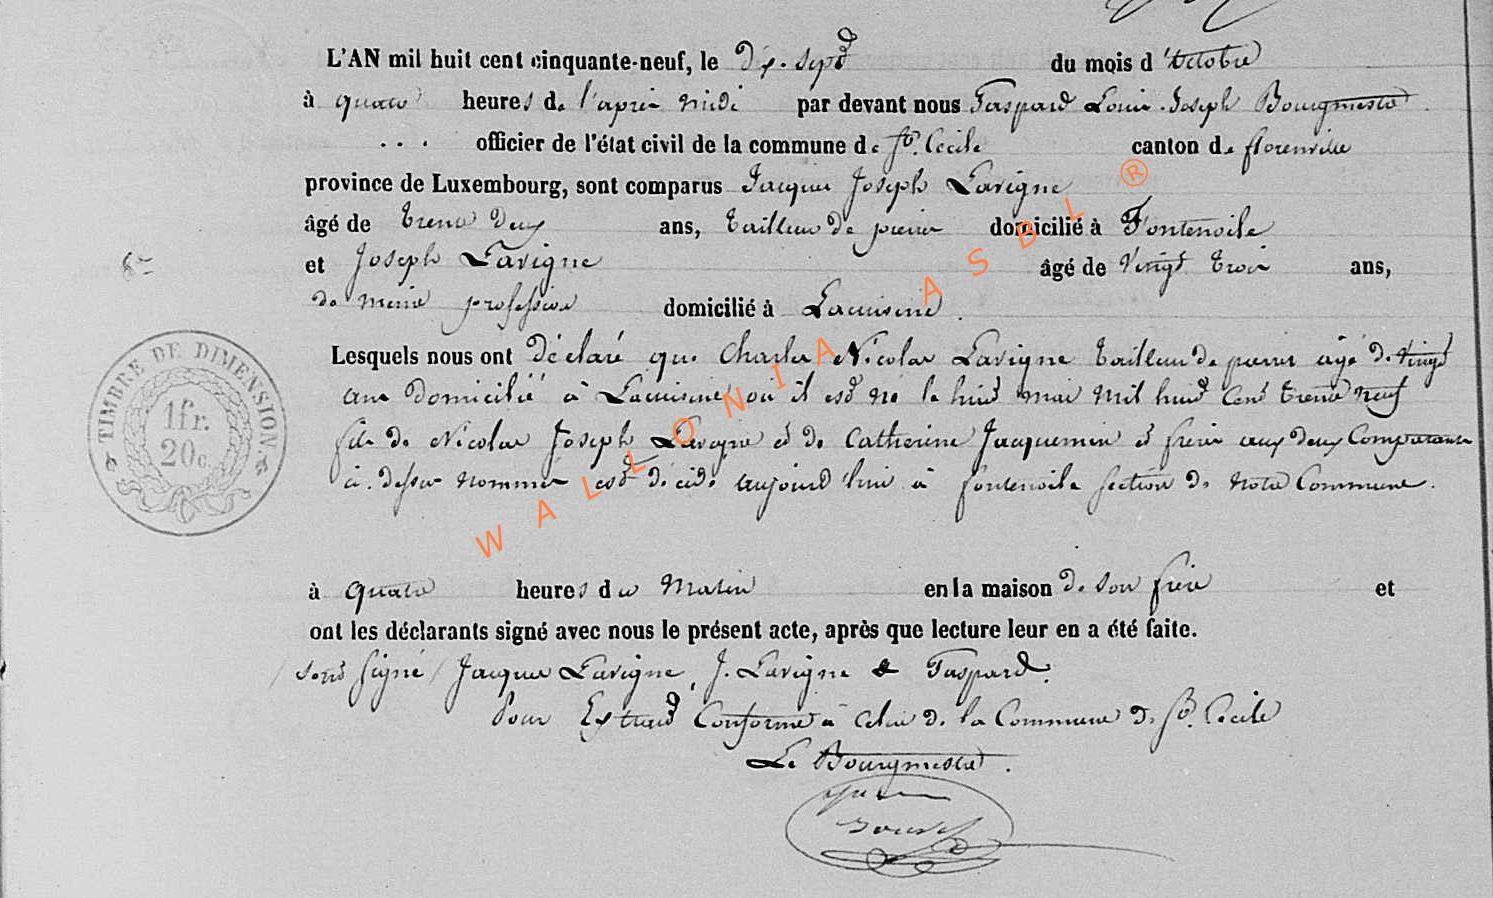 L'AN mil huit cent cinquante-neuf, le dix-sept du mois d'octobre
à quatre heures de l'après midi par devant nous Gaspard Louis Joseph Bourgmestre
... officier de l'état civil de la commune de Ste. Cécile canton de florenville
province de Luxembourg, sont comparus Jacques Joseph Lavigne
âgé de trente deux ans, tailleur de pierres domicilié à Fontenoile
et Joseph Lavigne âgé de vingt trois ans,
de même profession domicilié à Lacuisine.
Lesquels nous ont déclaré que Charles Nicolas Lavigne tailleur de pierres âgé de vingt
ans domicilié à Lacuisine où il est né le huit mai mil huit cent trente neuf
fils de Nicolas Joseph Lavigne et de Catherine Jacquemin et frère aux deux Comparants
ci-dessus nommés est décédé aujourd'hui à fontenoile section de notre Commune.
à quatre heures du matin en la maison de son frère et
ont les déclarants signé avec nous le présent acte, après que lecture leur en a été faite.
/ sont signé / Jacques Lavigne, J. Lavigne & Gaspard.
Pour Extrait Conforme à celui de la Commune de Ste. Cécile
Le Bourgmestre.
TIMBRE DE DIMENSION.
1 fr.
20 c.
WALLONIA ASBL ®